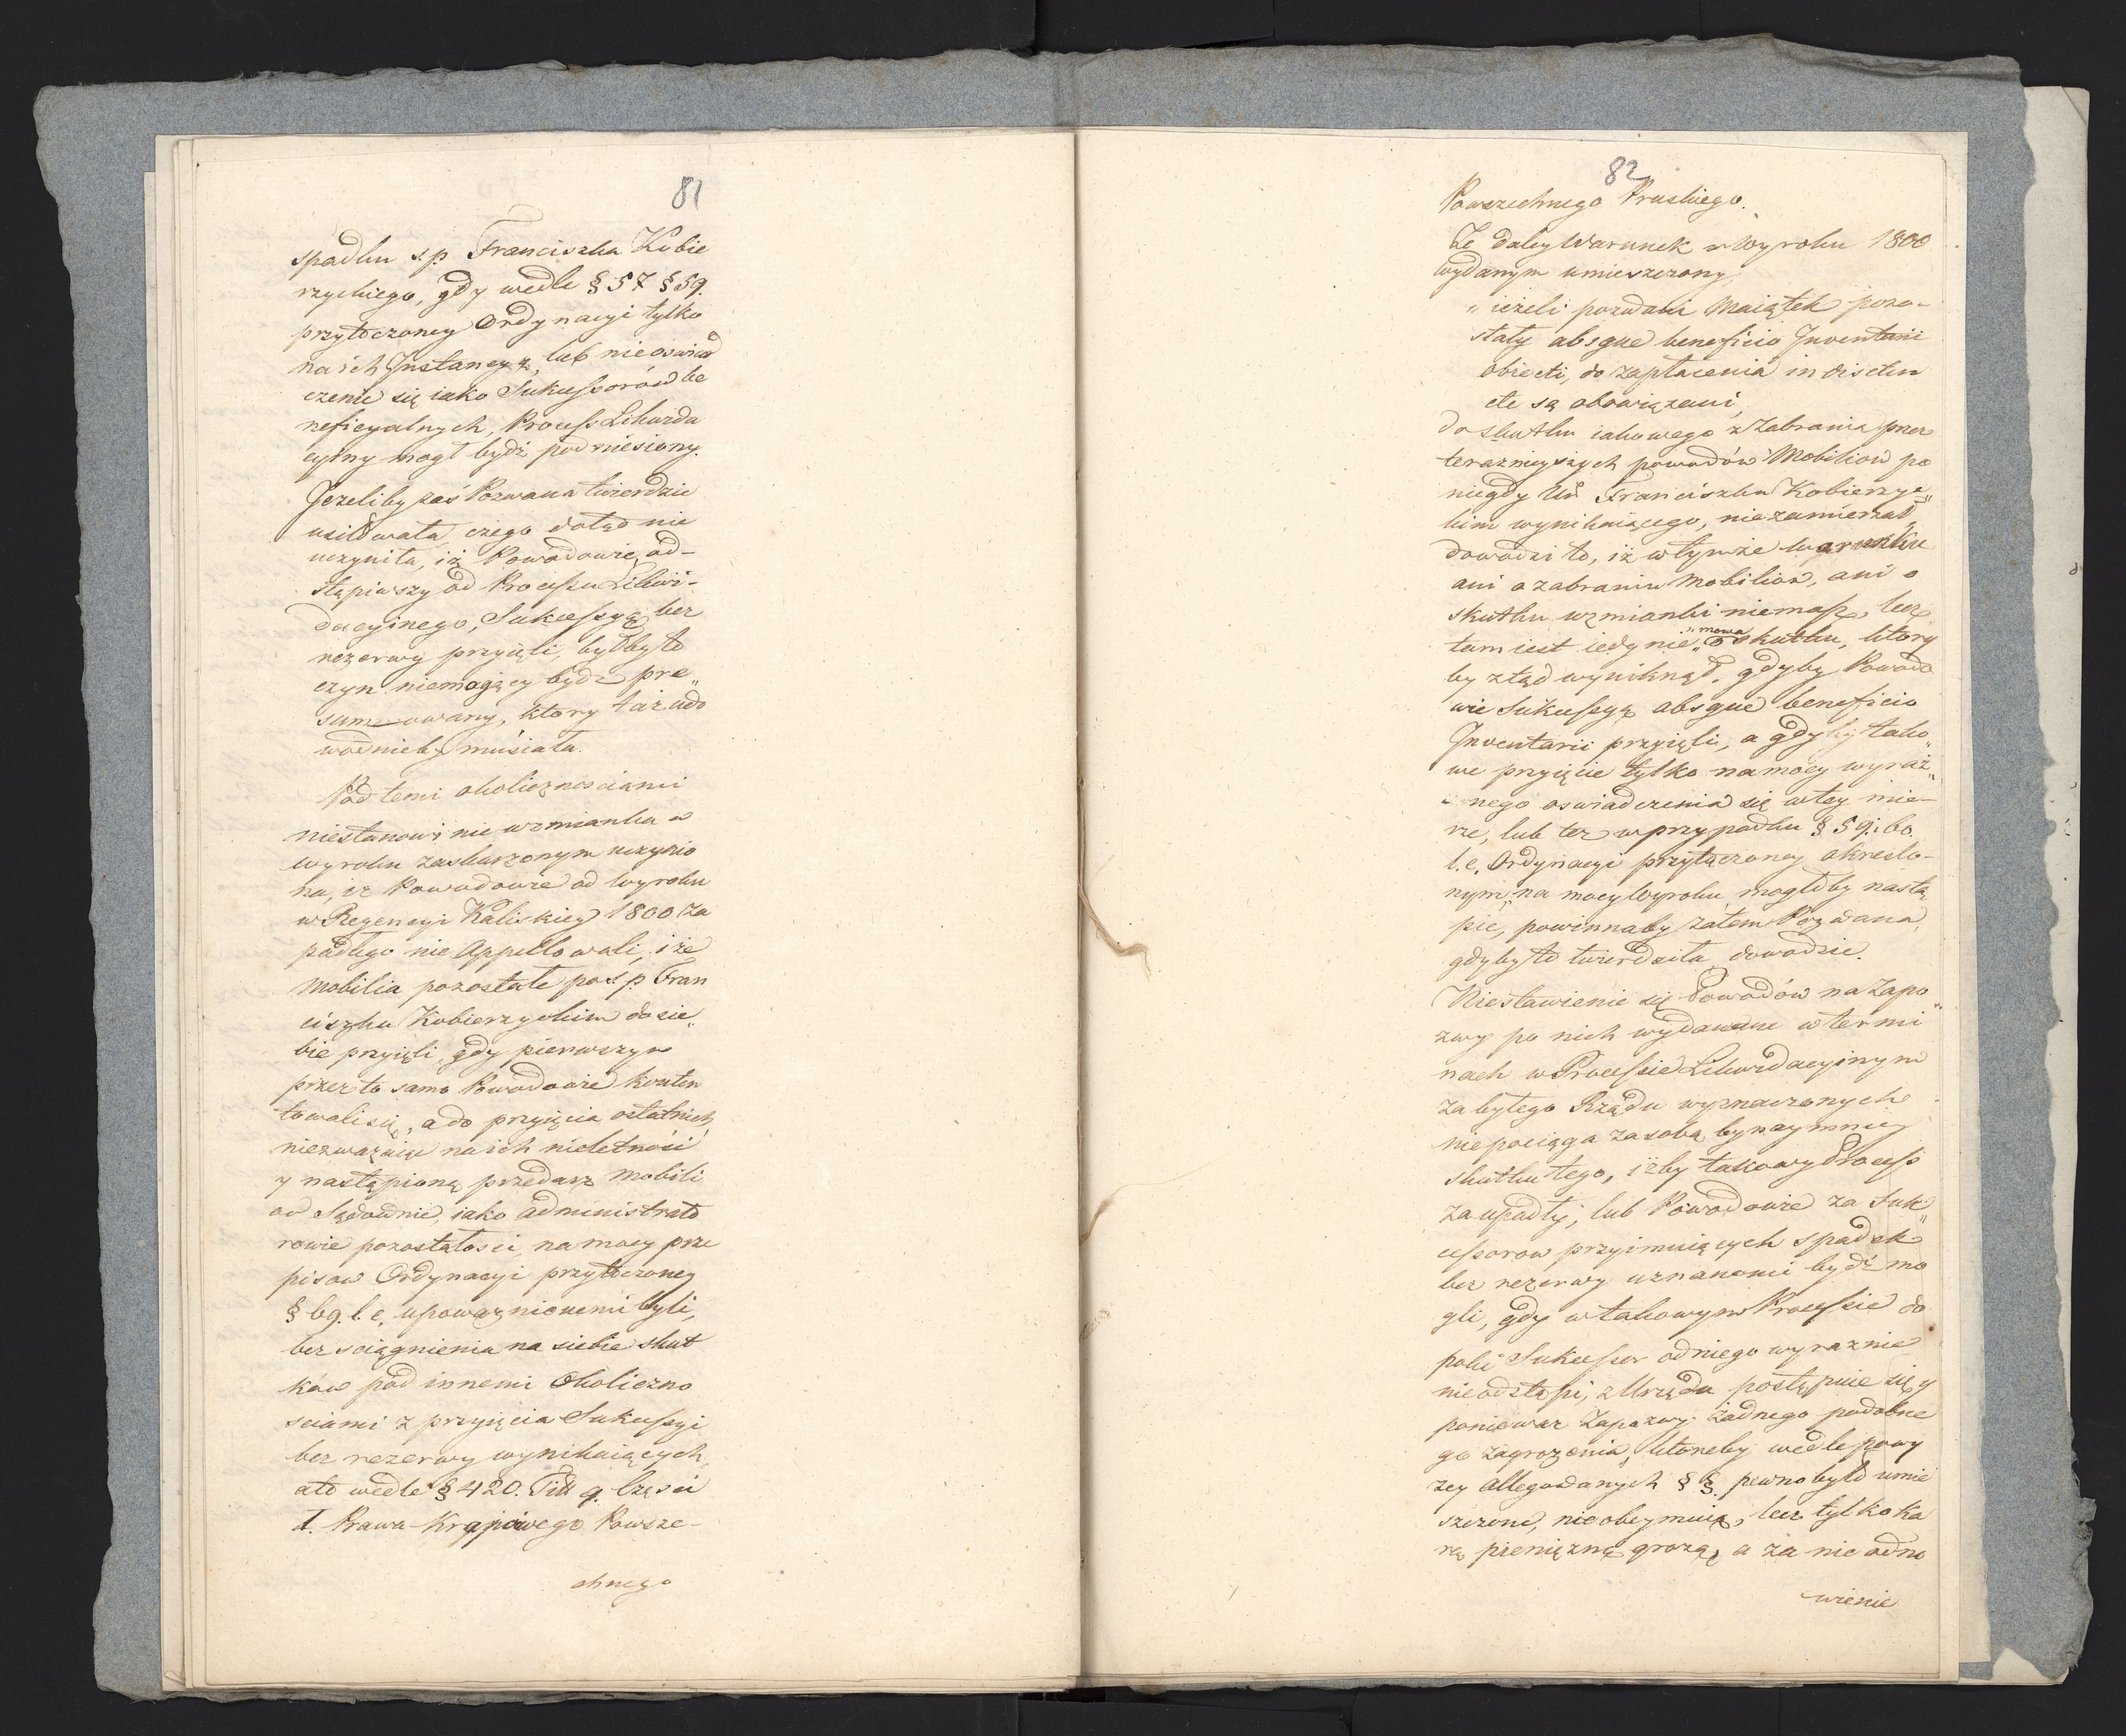 81
spadku s.p. Franciszka Kobie
rzyckiego, gdy wedle § 57 § 59.
przytoczoney Ordynacyi tylko
na ich Instancyą, lub nieoswiad
czenie się iako Sukcessorów be
neficyalnych, Process Likwida
cyiny mogł bydź podniesiony.
Jezeliby zaś Pozwana twierdzic
usiłowała czego dotąd nie
uczyniła, iż Powodowie od-
stąpiwszy od Processu Likwi-
dacyinego, Sukcessyą bez
rezerwy przyięli, byłby to
czyn niemogący bydź pre„
sumowany, ktory taż udo
wodnicby musiała.
Pod temi okolicznosciami
niestanowi nic wzmianka w
wyroku zaskarzonym uczynio
na, iż Powodowie od wyroku
w Regencyi Kaliskiey 1800 za
padłego nie Appellowali, i że
Mobilia pozostałe po s.p. Fran
ciszku Kobierzyckim do sie„
bie przyięli, gdy pierwszym
przez to samo Powodowie konten
towali się, a do przyięcia ostatnich
niezwazaiąc na ich nieletność
y nastąpioną przedarz Mobili
ow Sądownie, iako administrato
rowie pozostałosci na mocy prze
pisow Ordynacyi przytoczoney
§ 69. l. c. upowaznionemi byli,
bez sciągnienia na siebie skut
ków pod innemi okoliczno
sciami z przyięcia Sukcessyi
bez rezerwy wynikaiących,
a to wedle § 420. Titt 9. Częsci
1. Prawa Kraiowego Powsze-
chnego
82
Powszechnego Pruskiego.
Ze daley Warunek w Wyroku 1800
wydanym umieszczony,
„ iezeli pozwani Maiątek pozo-
stały absque beneficio Inventarii
obiecti, do zapłacenia in
etc są obowiązani,
do skutku iakowego z Zabrania przez
terazniejszych powodów Mobiliow po
niegdy Ur. Franciszku Kobierzyc„
kim wynikaiącego, niezamierzał,
dowodzi to, iż w tymże warunku
ani o zabraniu Mobiliow, ani o
skutku wzmianki niemasz, lecz
tam iest iedynie „mowa o skutku, ktory
by ztąd wyniknął, gdyby Powodo
wie Sukcessyą absque beneficio
Inventarii przyięli, a gdyby tako„
we przyięcie tylko na mocy wyraź„
nego oswiadczenia się w tey mie-
rze, lub tez w przypadku § 59. i 60.
l. c. Ordynacyi przytoczoney okreslo-
nym, na mocy Wyroku mogłoby nastą
pić, powinnaby zatem Pozwana,
gdyby to twierdziła dowodzic.
Niestawienie się Powodów na Zapo„
zwy po nich wydawane w termi
nach w Processie Likwidacyinym
za byłego Rządu wyznaczonych
niepociąga za sobą bynaymniey
skutku tego, iżby takowy Process
za upadły, lub Powodowie za Suk„
cessorow przyimuiących spadek
bez rezerwy uznanemi bydź mo
gli, gdy w takowym Processie do
poki Sukcessor od niego wyraznie
nieodstąpi, z Urzędu postępuie się y
poniewaz Zapozwy żadnego podobne
go zagrozenia, ktoreby wedle powy
zey Allegowanych § §. pewno było umie
szczone, nieobeymuią, lecz tylko ka
rą pieniężną grozą, a za nie odno
wienie